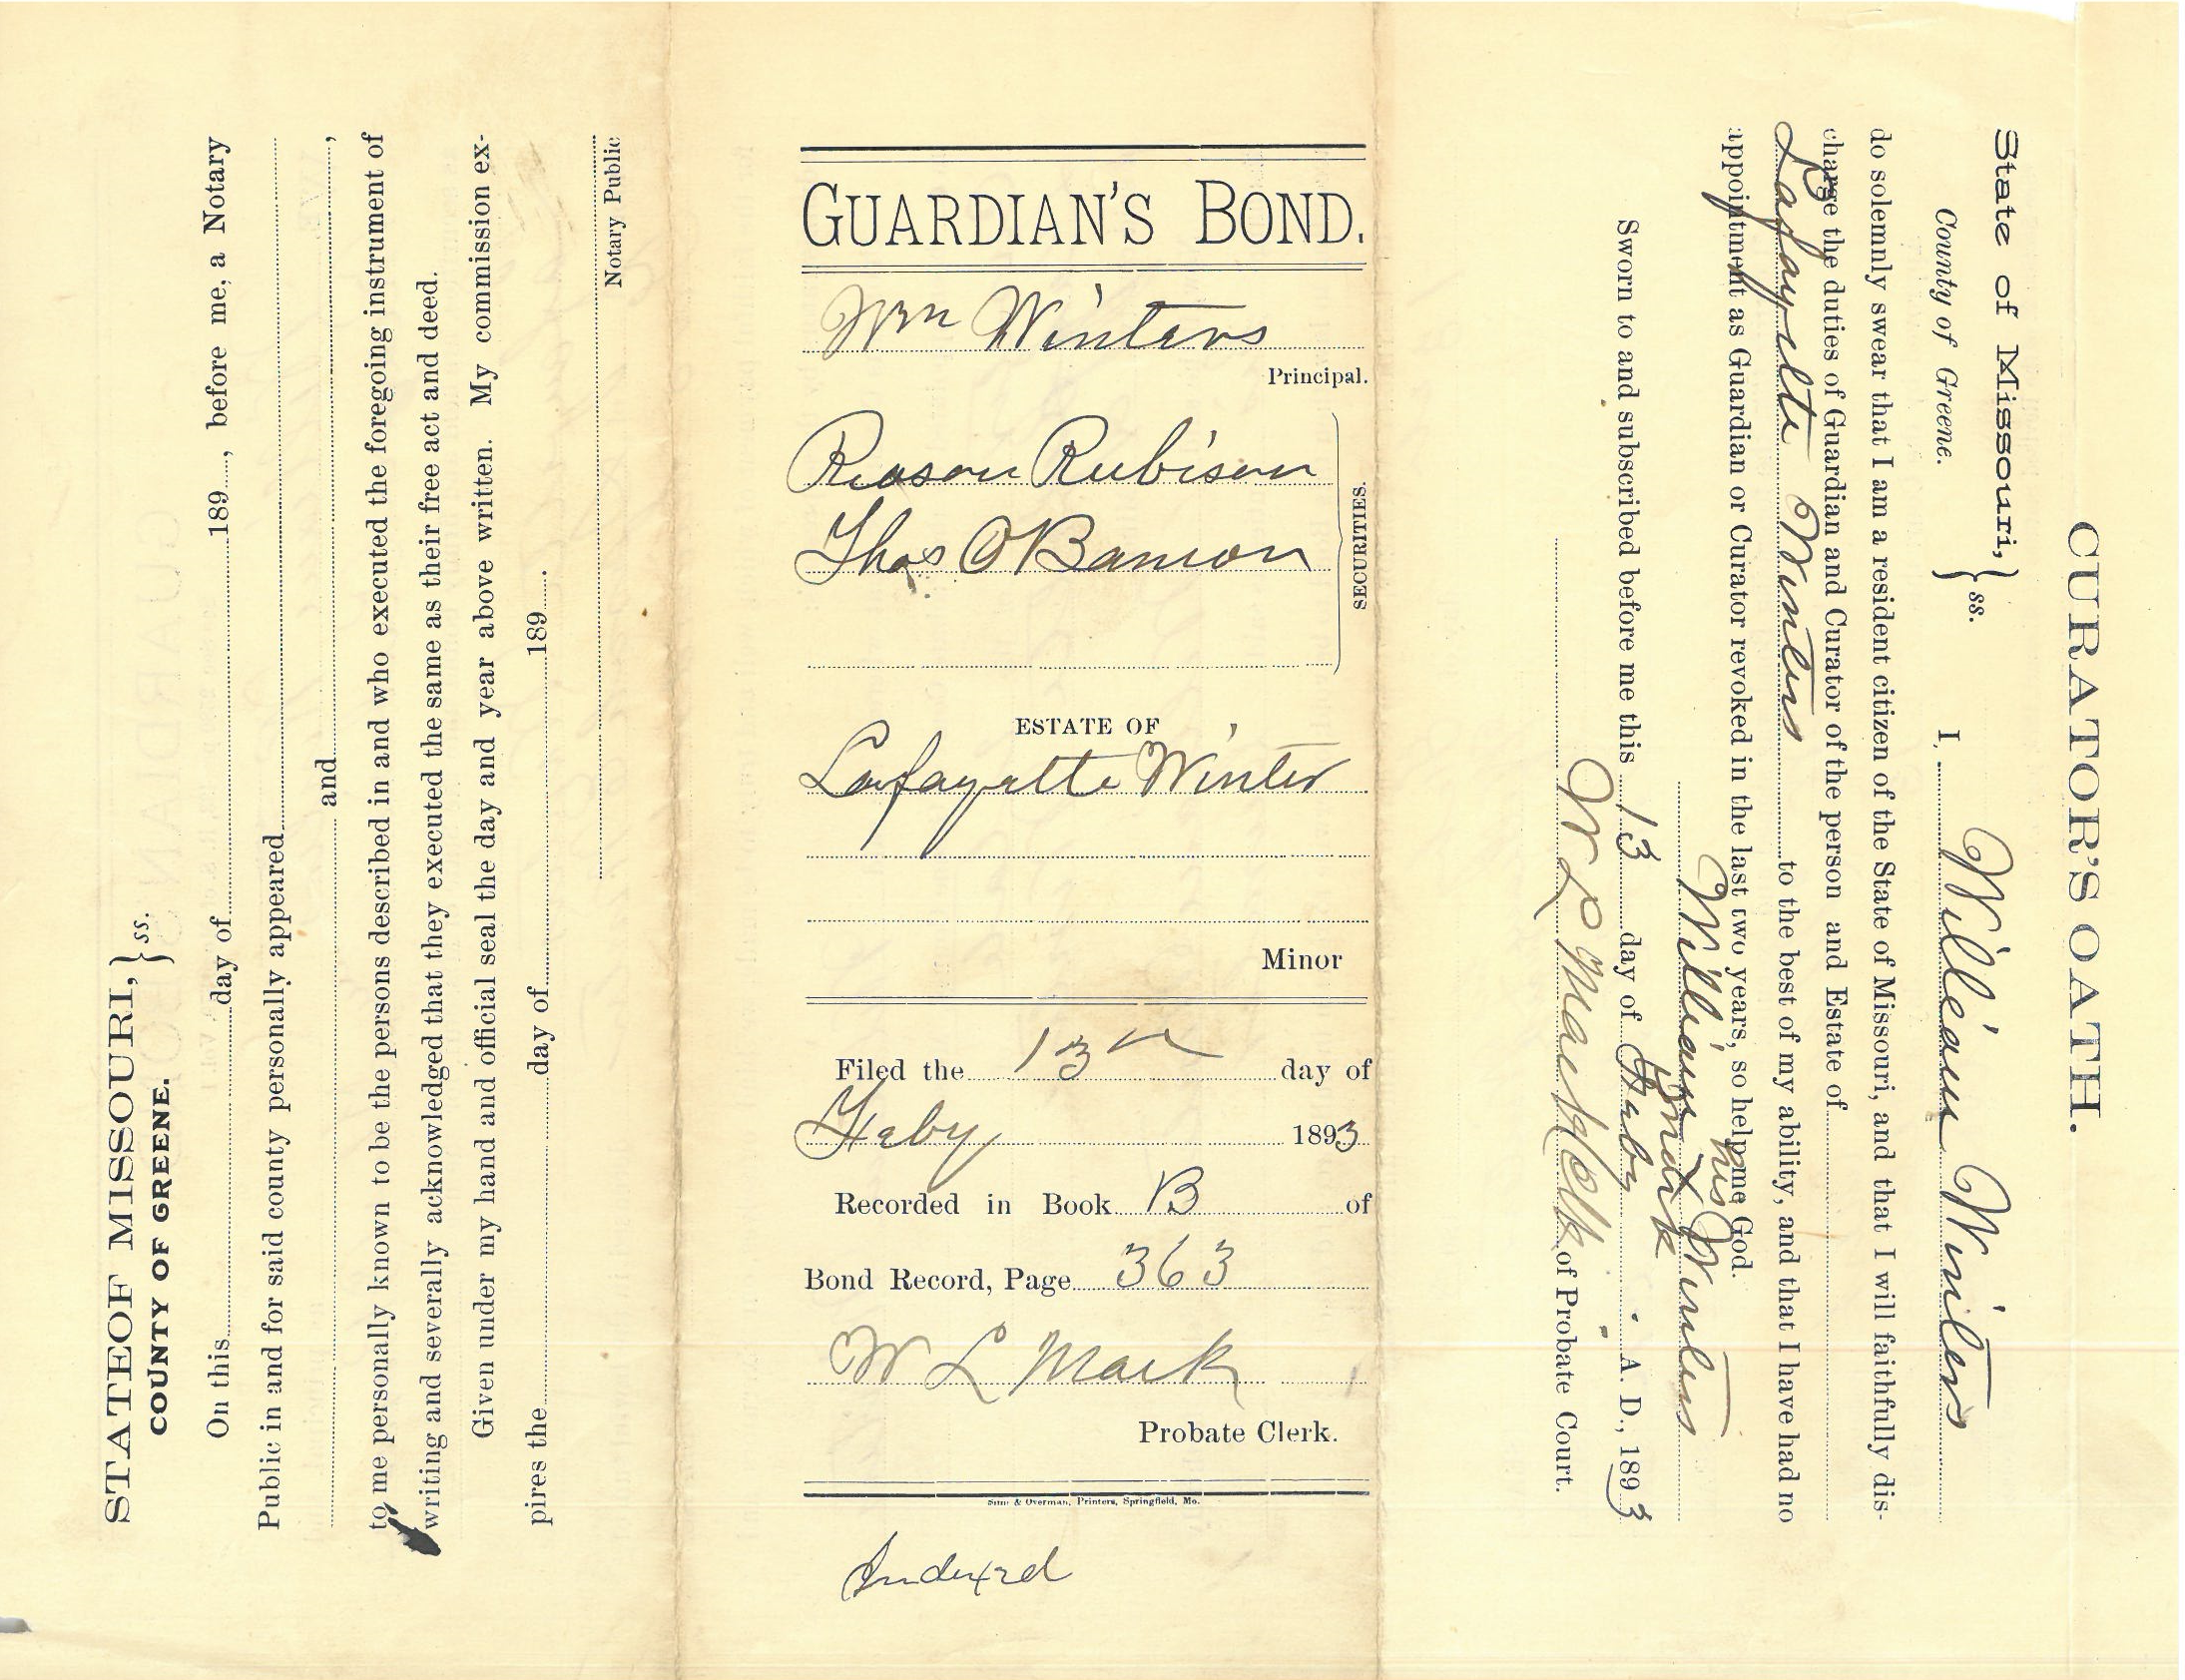 STATE OF MISSOURI, } ss.
COUNTY OF GREENE.
On this day of 189 , before me, a Notary
Public in and for said county personally appeared
and ,
to me personally known to be the persons described in and who executed the foregoing instrument of
writing and severally acknowledged that they executed the same as their free act and deed.
Given under my hand and official seal the day and year above written. My commission ex-
pires the day of 189 .
Notary Public
GUARDIAN'S BOND.
Wm Winters
Principal.
Reason Rubison
Thos O Banion
SECURITIES.
ESTATE OF
Lafayette Winter
Minor
Filed the 13 day of
Feby 1893
Recorded in Book B of
Bond Record, Page 363
W L Mack
Probate Clerk.
& Overman, Printers, Springfield, Mo.
Indexed
CURATOR'S OATH.
State of Missouri, } ss.
County of Greene.
I, William Winters
do solemnly swear that I am a resident citizen of the State of Missouri, and that I will faithfully dis-
charge the duties of Guardian and Curator of the person and Estate of
Lafayette Winters to the best of my ability, and that I have had no
appointment as Guardian or Curator revoked in the last two years, so help me God.
his
William X Winters
mark
Sworn to and subscribed before me this 13 day of Feby A. D., 1893
W L Mack Clk of Probate Court.